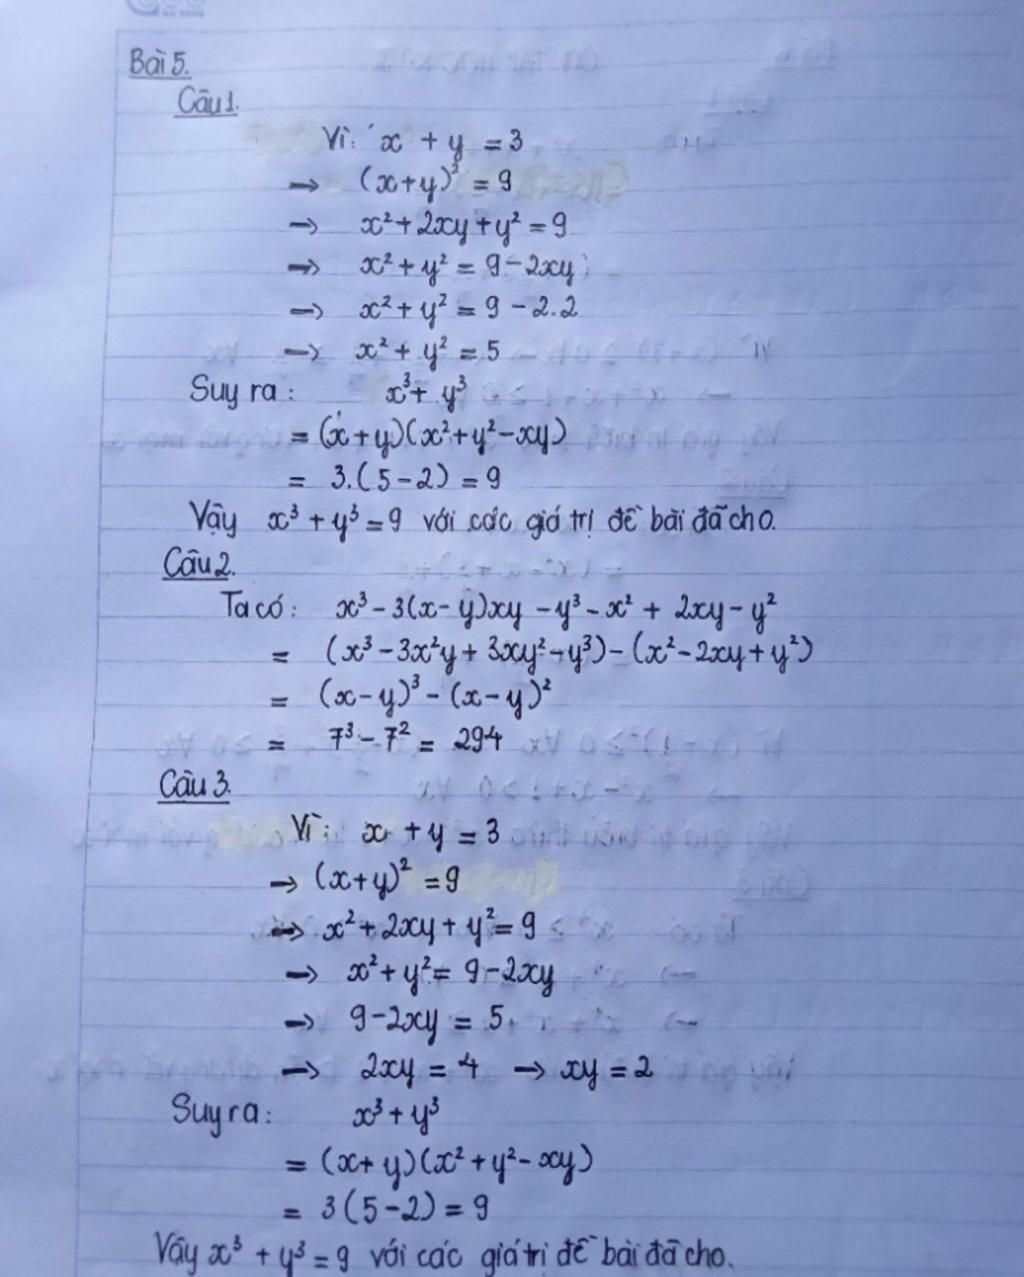 Bài 5.
Câu 1.
Vì: x + y = 3
→ (x+y)² = 9
→ x² + 2xy + y² = 9
→ x² + y² = 9 - 2xy
→ x² + y² = 9 - 2.2
→ x² + y² = 5
Suy ra: x³ + y³
= (x + y)(x² + y² - xy)
= 3.(5 - 2) = 9
Vậy x³ + y³ = 9 với các giá trị đề bài đã cho.
Câu 2.
Ta có: x³ - 3(x - y)xy - y³ - x² + 2xy - y²
= (x³ - 3x²y + 3xy² - y³) - (x² - 2xy + y²)
= (x - y)³ - (x - y)²
= 7³ - 7² = 294
Câu 3.
Vì: x + y = 3
→ (x+y)² = 9
→ x² + 2xy + y² = 9
→ x² + y² = 9 - 2xy
→ 9 - 2xy = 5
→ 2xy = 4 → xy = 2
Suy ra: x³ + y³
= (x + y)(x² + y² - xy)
= 3(5 - 2) = 9
Vậy x³ + y³ = 9 với các giá trị đề bài đã cho.